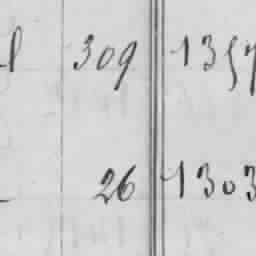 309 1357
26 1303